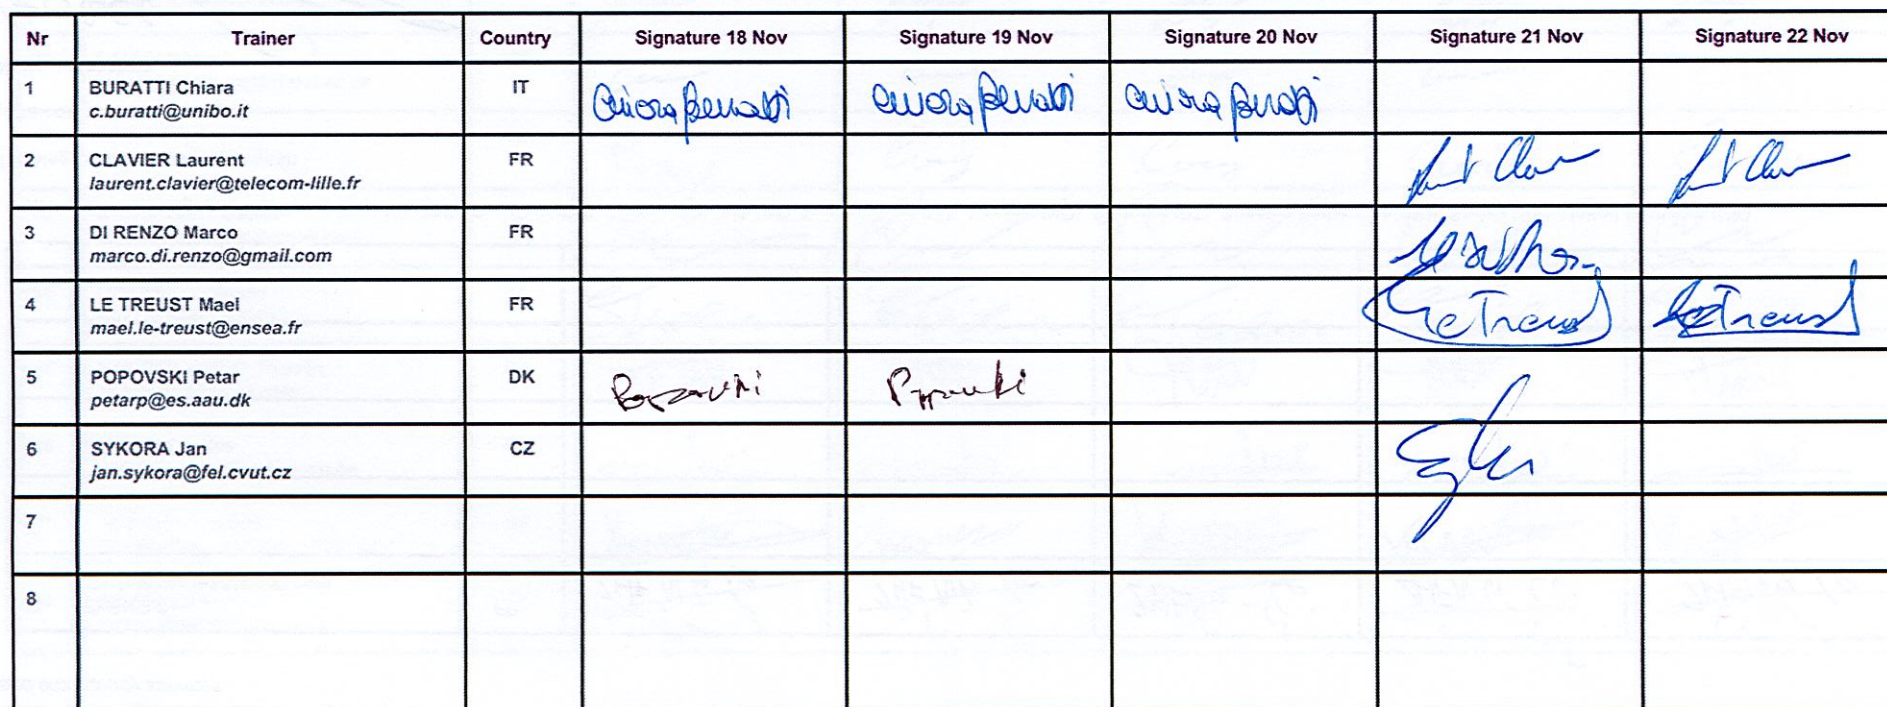 Nr Trainer Country Signature 18 Nov Signature 19 Nov Signature 20 Nov Signature 21 Nov Signature 22 Nov
1 BURATTI Chiara IT
c.buratti@unibo.it
Chiara Buratti Chiara Buratti Chiara Buratti
2 CLAVIER Laurent FR
laurent.clavier@telecom-lille.fr
3 DI RENZO Marco FR
marco.di.renzo@gmail.com
4 LE TREUST Mael FR
mael.le-treust@ensea.fr
Le Treust Le Treust
5 POPOVSKI Petar DK
petarp@es.aau.dk
Popovski Popovski
6 SYKORA Jan CZ
jan.sykora@fel.cvut.cz
7
8